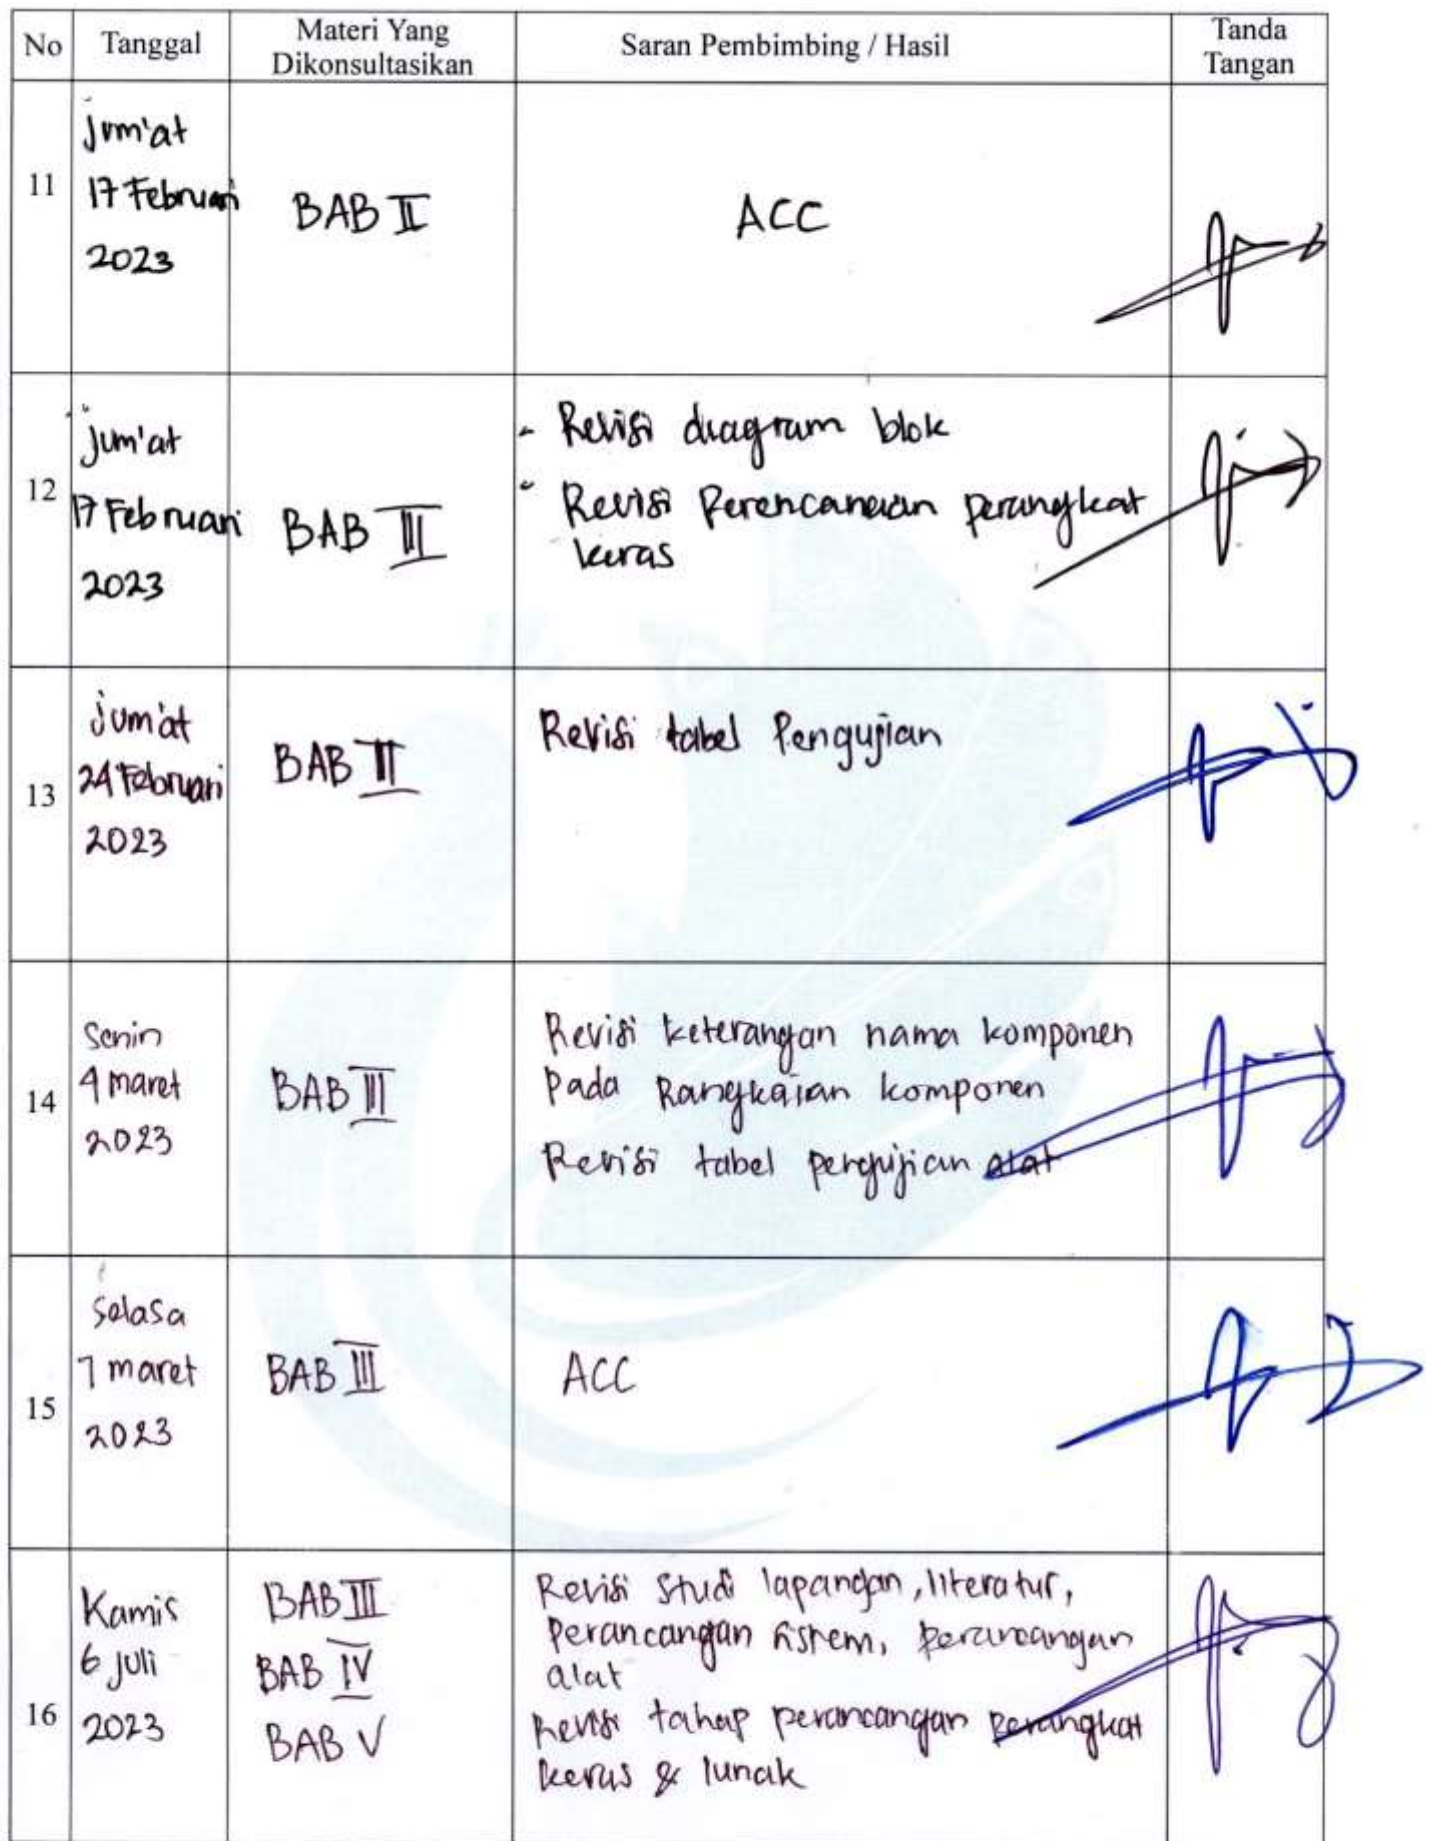 No
Tanggal
Materi Yang
Dikonsultasikan
Saran Pembimbing / Hasil
Tanda
Tangan
11
Jum'at
17 Februari
2023
BAB II
ACC
12
Jum'at
17 Februari
2023
BAB III
- Revisi diagram blok
- Revisi Perencanaan perangkat
keras
13
Jum'at
24 Februari
2023
BAB II
Revisi tabel Pengujian
14
Senin
4 maret
2023
BAB III
Revisi keterangan nama komponen
pada Rangkaian komponen
Revisi tabel pengujian alat
15
Selasa
7 maret
2023
BAB III
ACC
16
Kamis
6 juli
2023
BAB III
BAB IV
BAB V
Revisi Studi lapangan, literatur,
Perancangan sistem, perancangan
alat
Revisi tahap perancangan perangkat
keras & lunak